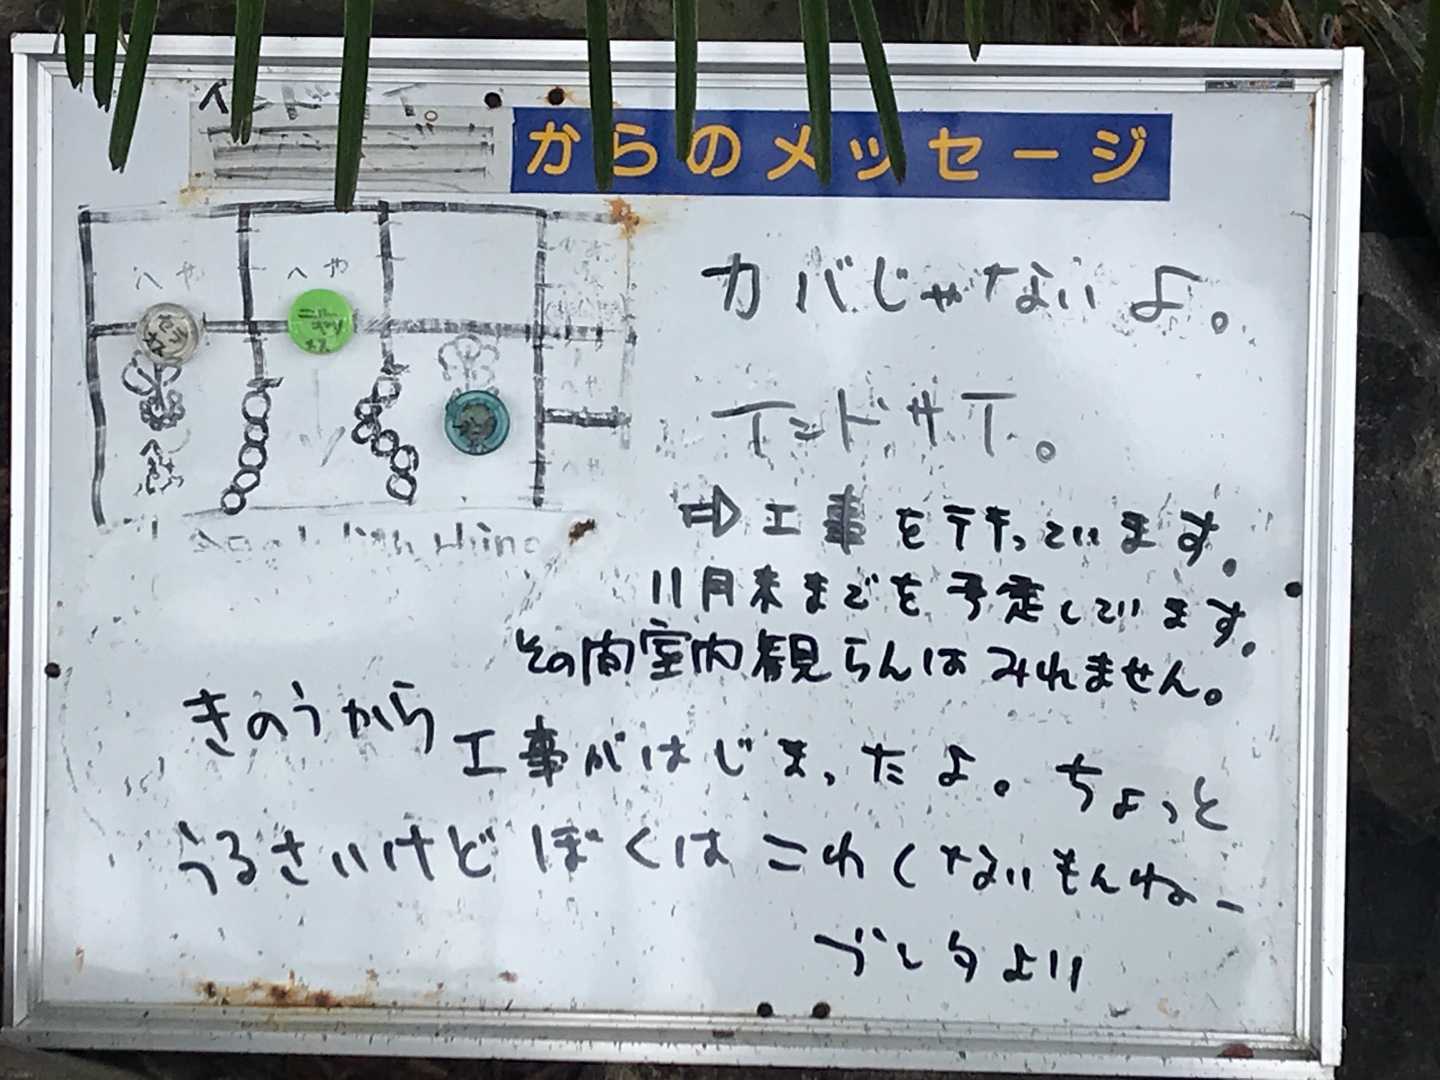 インドサイ。
からのメッセージ
へや
へや
カバじゃないよ。
インドサイ。
⇒工事を行っています。
11月末までを予定しています。
その間室内観らんはみれません。
きのうから工事がはじまったよ。ちょっと
うるさいけどぼくはこわくないもんねー
ブンタより